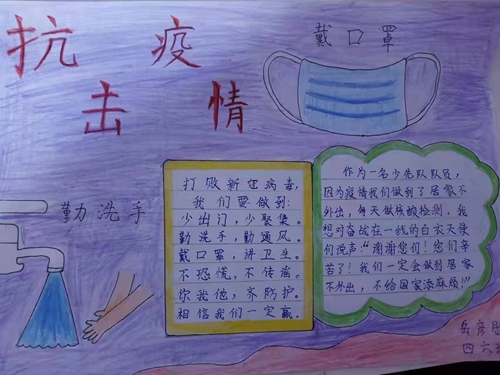 抗疫
击情
戴口罩
勤洗手
打败新冠病毒,
我们要做到:
少出门,少聚集。
勤洗手,勤通风。
戴口罩,讲卫生。
不恐慌,不传谣。
你我他,齐防护。
相信我们一定赢。
作为一名少先队队员,
因为疫情我们做到了居家不
外出,每天做核酸检测,我
想对奋战在一线的白衣天使
们说声“谢谢您们!您们辛
苦了!我们一定会做到居家
不外出,不给国家添麻烦!”
四六